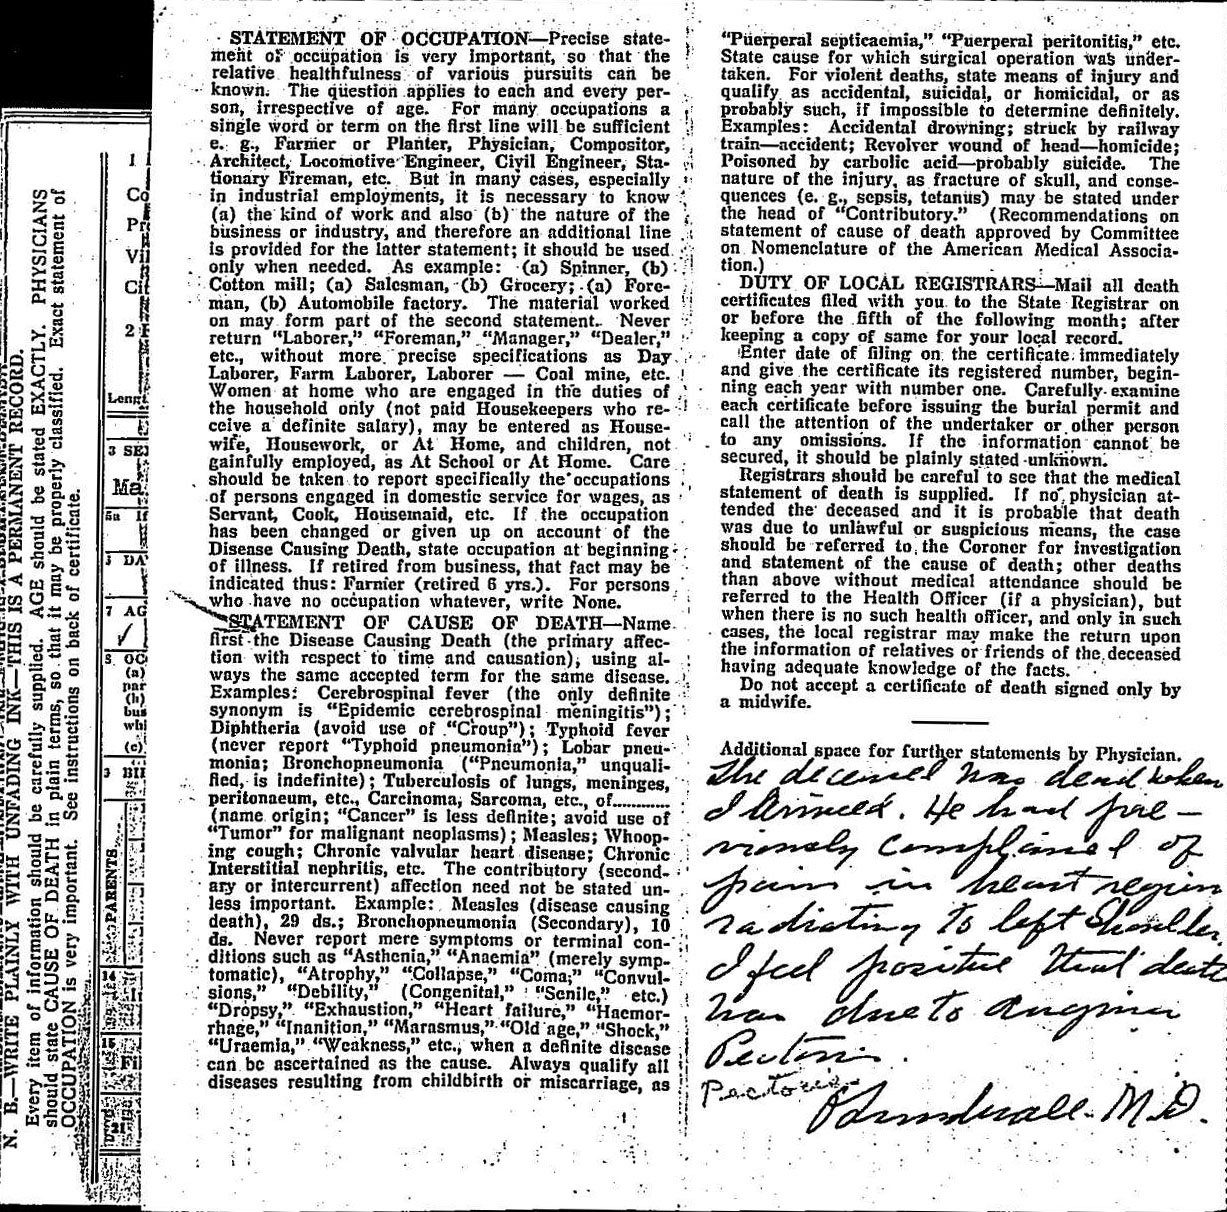 N. B.—WRITE PLAINLY WITH UNFADING INK—THIS IS A PERMANENT RECORD.
Every item of information should be carefully supplied. AGE should be stated EXACTLY. PHYSICIANS
should state CAUSE OF DEATH in plain terms, so that it may be properly classified. Exact statement of
OCCUPATION is very important. See instructions on back of certificate.
1
Co
Vil
2
Lengt
3 SE
Ma
5a If
DA
7 AG
OC
(a)
par
(b)
bus
whi
(c)
BI
PARENTS
14
15
Fil
21
STATEMENT OF OCCUPATION—Precise state-
ment of occupation is very important, so that the
relative healthfulness of various pursuits can be
known. The question applies to each and every per-
son, irrespective of age. For many occupations a
single word or term on the first line will be sufficient
e. g., Farmer or Planter, Physician, Compositor,
Architect, Locomotive Engineer, Civil Engineer, Sta-
tionary Fireman, etc. But in many cases, especially
in industrial employments, it is necessary to know
(a) the kind of work and also (b) the nature of the
business or industry, and therefore an additional line
is provided for the latter statement; it should be used
only when needed. As example: (a) Spinner, (b)
Cotton mill; (a) Salesman, (b) Grocery; (a) Fore-
man, (b) Automobile factory. The material worked
on may form part of the second statement. Never
return "Laborer," "Foreman," "Manager," "Dealer,"
etc., without more precise specifications as Day
Laborer, Farm Laborer, Laborer — Coal mine, etc.
Women at home who are engaged in the duties of
the household only (not paid Housekeepers who re-
ceive a definite salary), may be entered as House-
wife, Housework, or At Home, and children, not
gainfully employed, as At School or At Home. Care
should be taken to report specifically the occupations
of persons engaged in domestic service for wages, as
Servant, Cook, Housemaid, etc. If the occupation
has been changed or given up on account of the
Disease Causing Death, state occupation at beginning
of illness. If retired from business, that fact may be
indicated thus: Farmer (retired 6 yrs.). For persons
who have no occupation whatever, write None.
STATEMENT OF CAUSE OF DEATH—Name
first the Disease Causing Death (the primary affec-
tion with respect to time and causation), using al-
ways the same accepted term for the same disease.
Examples: Cerebrospinal fever (the only definite
synonym is "Epidemic cerebrospinal meningitis");
Diphtheria (avoid use of "Croup"); Typhoid fever
(never report "Typhoid pneumonia"); Lobar pneu-
monia; Bronchopneumonia ("Pneumonia," unquali-
fied, is indefinite); Tuberculosis of lungs, meninges,
peritonaeum, etc., Carcinoma, Sarcoma, etc., of............
(name origin; "Cancer" is less definite; avoid use of
"Tumor" for malignant neoplasms); Measles; Whoop-
ing cough; Chronic valvular heart disease; Chronic
Interstitial nephritis, etc. The contributory (second-
ary or intercurrent) affection need not be stated un-
less important. Example: Measles (disease causing
death), 29 ds.; Bronchopneumonia (Secondary), 10
ds. Never report mere symptoms or terminal con-
ditions such as "Asthenia," "Anaemia" (merely symp-
tomatic), "Atrophy," "Collapse," "Coma," "Convul-
sions," "Debility," (Congenital," "Senile," etc.)
"Dropsy," "Exhaustion," "Heart failure," "Haemor-
rhage," "Inanition," "Marasmus," "Old age," "Shock,"
"Uraemia," "Weakness," etc., when a definite disease
can be ascertained as the cause. Always qualify all
diseases resulting from childbirth or miscarriage, as
"Puerperal septicaemia," "Puerperal peritonitis," etc.
State cause for which surgical operation was under-
taken. For violent deaths, state means of injury and
qualify as accidental, suicidal, or homicidal, or as
probably such, if impossible to determine definitely.
Examples: Accidental drowning; struck by railway
train—accident; Revolver wound of head—homicide;
Poisoned by carbolic acid—probably suicide. The
nature of the injury, as fracture of skull, and conse-
quences (e. g., sepsis, tetanus) may be stated under
the head of "Contributory." (Recommendations on
statement of cause of death approved by Committee
on Nomenclature of the American Medical Associa-
tion.)
DUTY OF LOCAL REGISTRARS—Mail all death
certificates filed with you to the State Registrar on
or before the fifth of the following month; after
keeping a copy of same for your local record.
Enter date of filing on the certificate immediately
and give the certificate its registered number, begin-
ning each year with number one. Carefully examine
each certificate before issuing the burial permit and
call the attention of the undertaker or other person
to any omissions. If the information cannot be
secured, it should be plainly stated unknown.
Registrars should be careful to see that the medical
statement of death is supplied. If no physician at-
tended the deceased and it is probable that death
was due to unlawful or suspicious means, the case
should be referred to the Coroner for investigation
and statement of the cause of death; other deaths
than above without medical attendance should be
referred to the Health Officer (if a physician), but
when there is no such health officer, and only in such
cases, the local registrar may make the return upon
the information of relatives or friends of the deceased
having adequate knowledge of the facts.
Do not accept a certificate of death signed only by
a midwife.
Additional space for further statements by Physician.
The deceased was dead when
I arrived. He had pre-
viously complained of
pain in heart region
radiating to left shoulder
I feel positive that death
was due to Angina
Pectoris.
Pectoris
M.D.